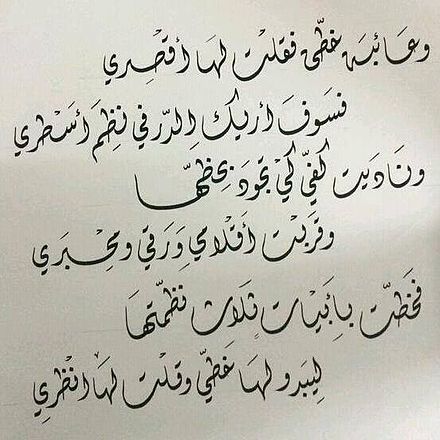 وعائبه خطّي فقلت لها أقصري
فسوف أريك الدّر في نظم أسطري
وناديت كفّي كي تجود بخطّها
وقربت أقلامي ورقي ومحبري
فخطّت بأبيات ثلاث نظمتها
ليبدو لها خطّي وقلت لها انظري